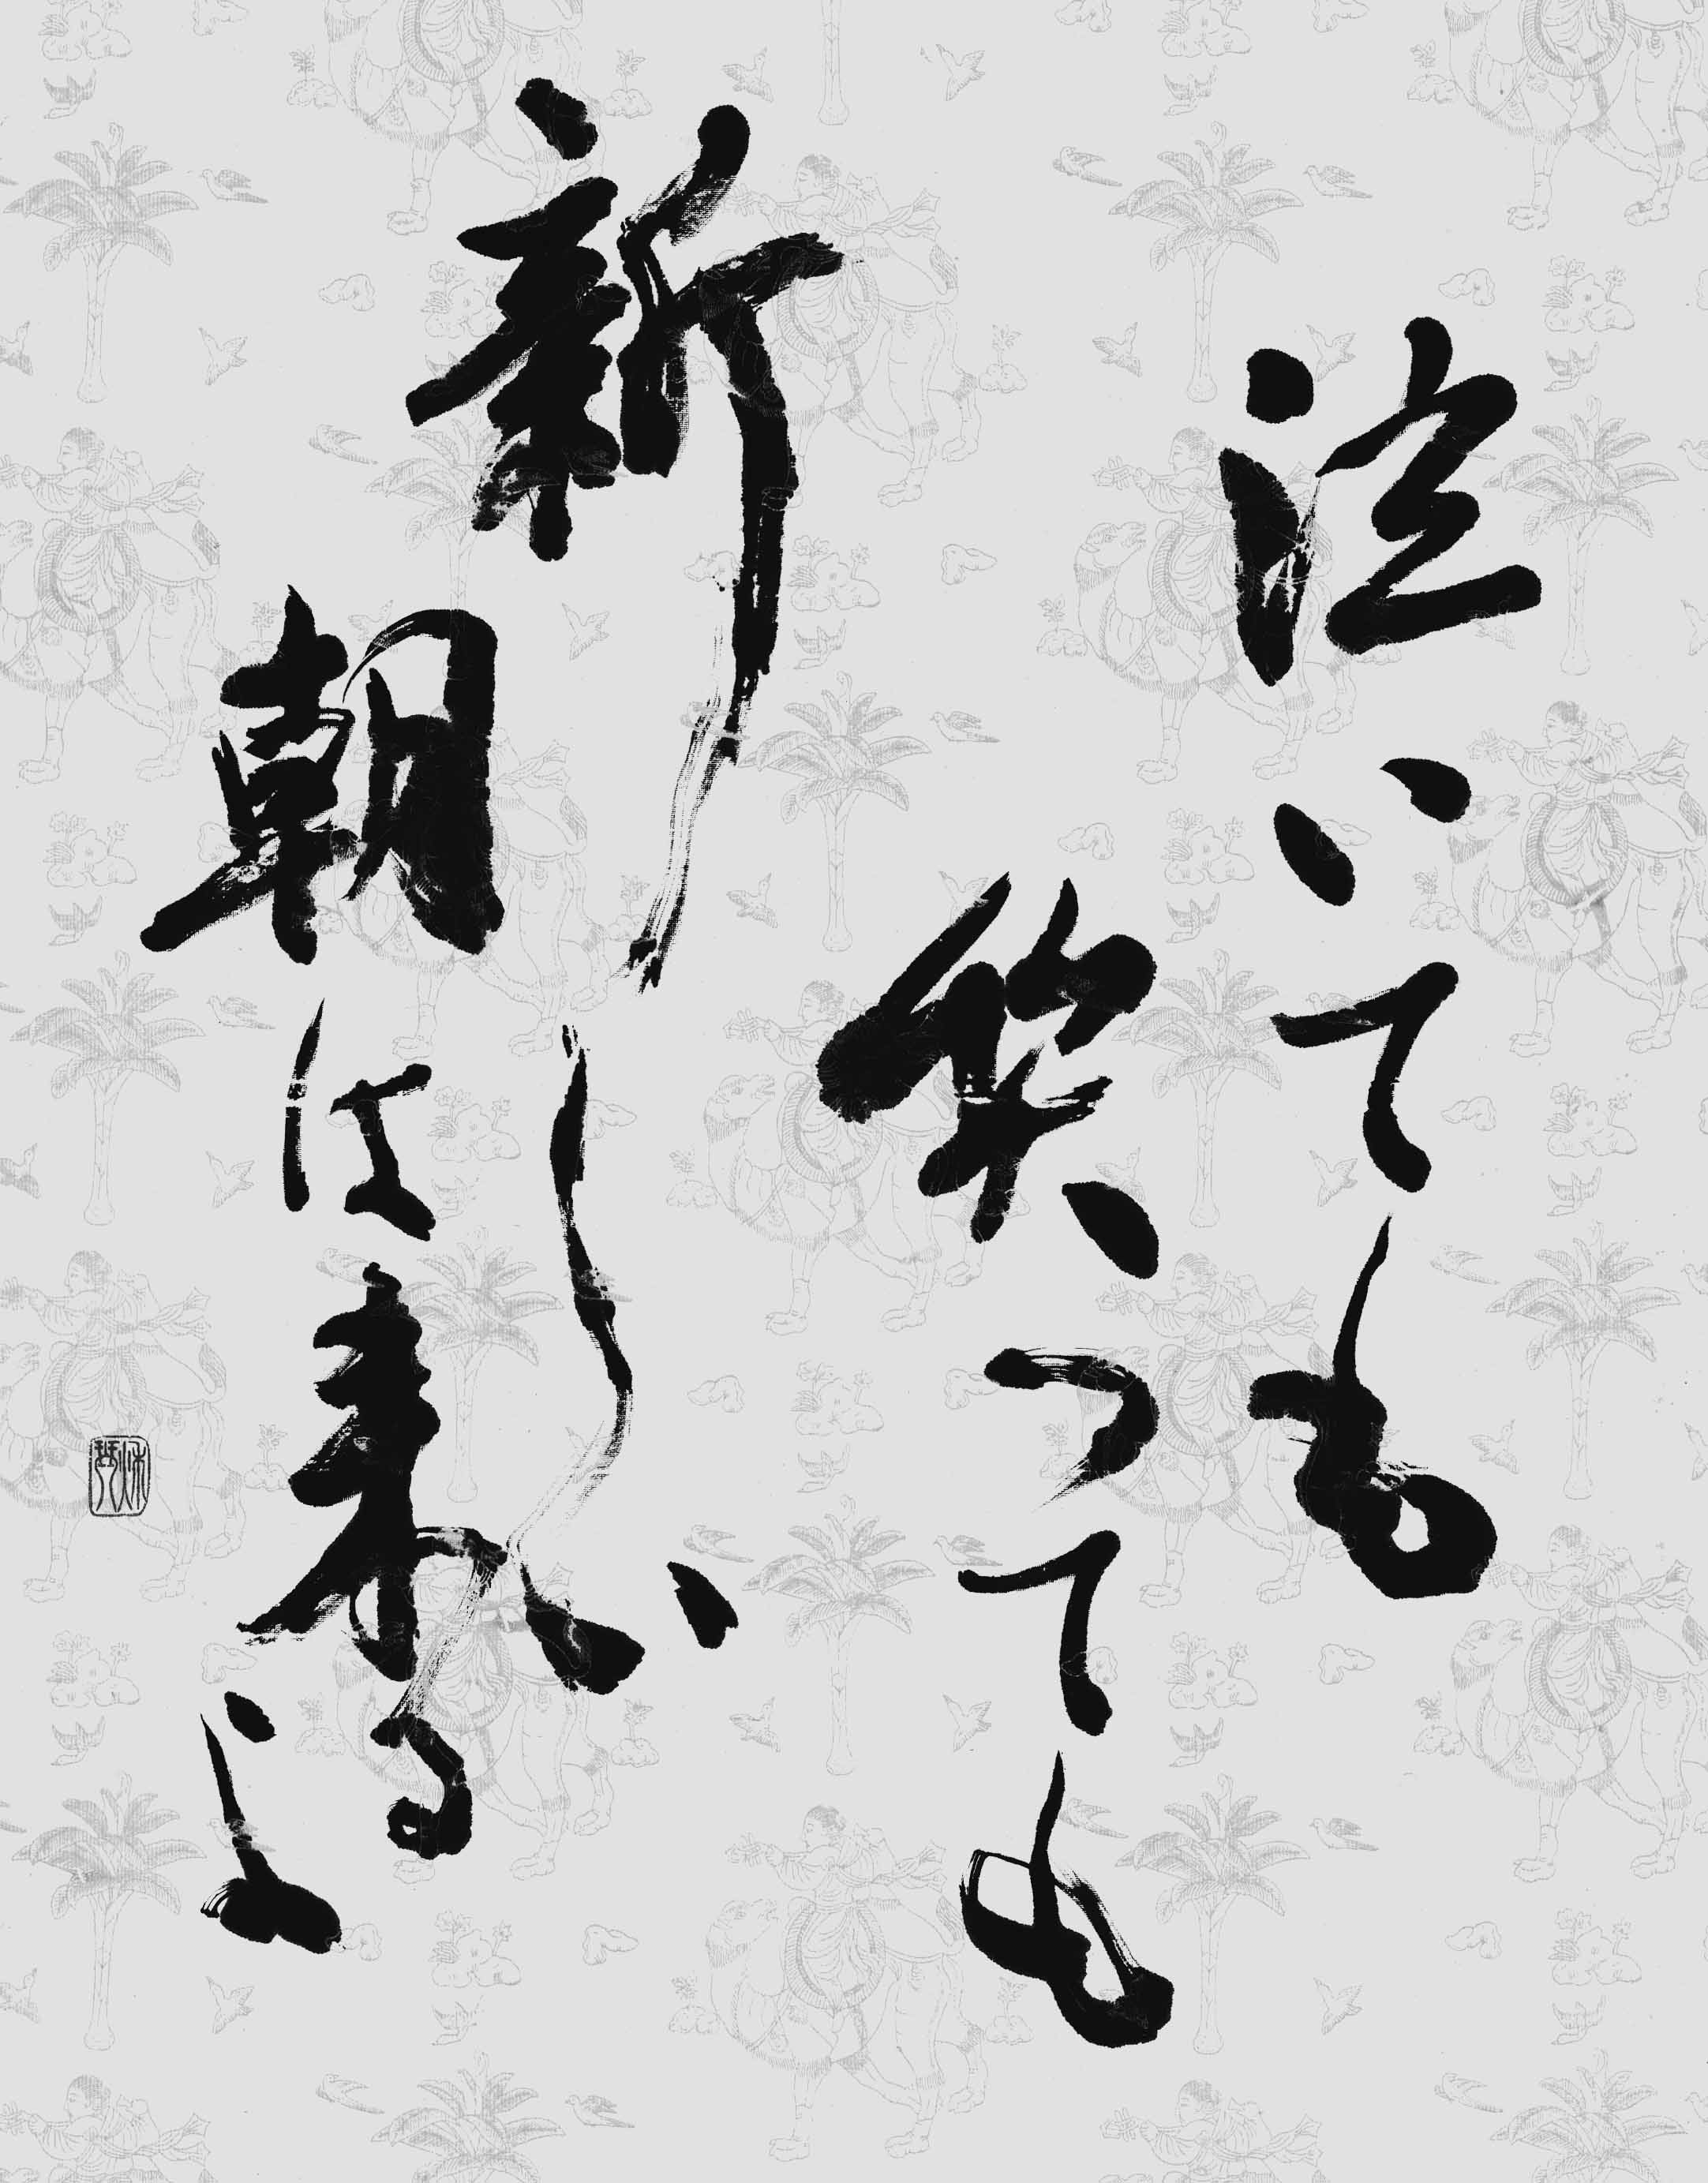 泣いても
笑つても
新しい
朝は来る
よ